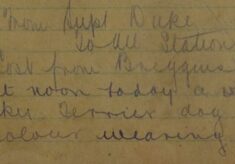 From Supt Duke
to All Station
Lost from Breggus
at noon today a w
key Terrier dog
colour wearing